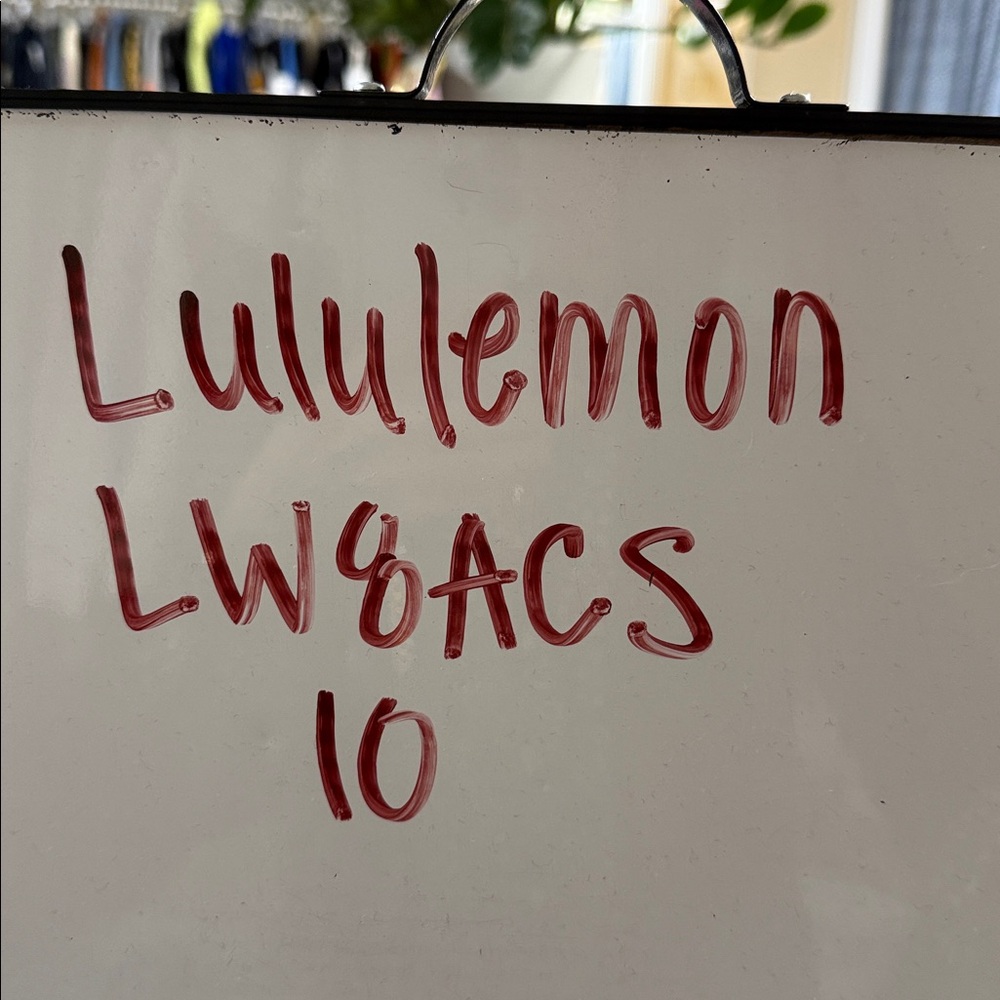 Lululemon
LW8ACS
10